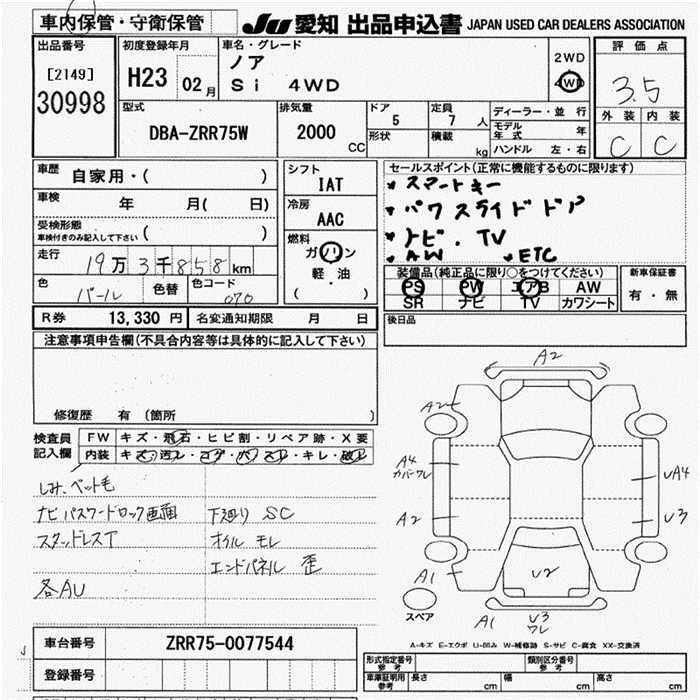 車内保管・守衛保管
JU 愛知 出品申込書 JAPAN USED CAR DEALERS ASSOCIATION
出品番号
[2149]
30998
初度登録年月
H23 02月
車名・グレード
ノア
Si 4WD
2WD
4WD
評価点
3.5
外装 内装
C C
型式
DBA-ZRR75W
排気量
2000 CC
ドア
5
形状
定員
7 人
積載
kg
ディーラー・並行
モデル年式 年
ハンドル 左・右
車歴
自家用・( )
車検 年 月( 日)
受検形態
車検付きのみ記入して下さい ( )
走行
19万3千858km
色
パール
色替
色コード
070
シフト
IAT
冷房
AAC
燃料
ガソリン
軽・油
( )
セールスポイント(正常に機能するものに限ります)
スマートキー
パワスライドドア
ナビ・TV
AW ETC
装備品(純正品に限り○をつけてください)
PS PW エアB AW
SR ナビ TV カワシート
新車保証書
有・無
後日品
R券 13,330 円 名変通知期限 月 日
注意事項申告欄(不具合内容等は具体的に記入して下さい)
修復歴 有 〔箇所 〕
検査員
記入欄
FW キズ・飛石・ヒビ割・リペア跡・X要
内装 キズ・汚レ・コゲ・穴・スレ・キレ・破レ
しみ、ペット毛
ナビパスワードロック画面 下廻り SC
スタッドレスT オイルモレ
エンドパネル 歪
各AU
A2
A2
A4
カバーワレ
A2
A1
UA4
U3
U2
スペア
A1
U3
ワレ
A-キズ E-エクボ U-凹み W-補修跡 S-サビ C-腐食 XX-交換済
車台番号 ZRR75-0077544
登録番号
形式指定番号
参考
類別区分番号
参考
車庫証明用
参考
長さ cm 幅 cm 高さ cm